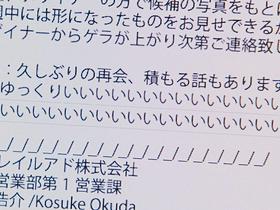 ザイナーの方で候補の写真をもとに
週中には形になったものをお見せできるか
ザイナーからゲラが上がり次第ご連絡致し
：久しぶりの再会、積もる話もあります
ゆっくりいいいいいいいいいいいいいいい
いいいいいいいいいいいいいいいいいいい
_/_/_/_/_/_/_/_/_/_/_/_/_/_/_/_/_/
レイルアド株式会社
営業部第1営業課
浩介 /Kosuke Okuda